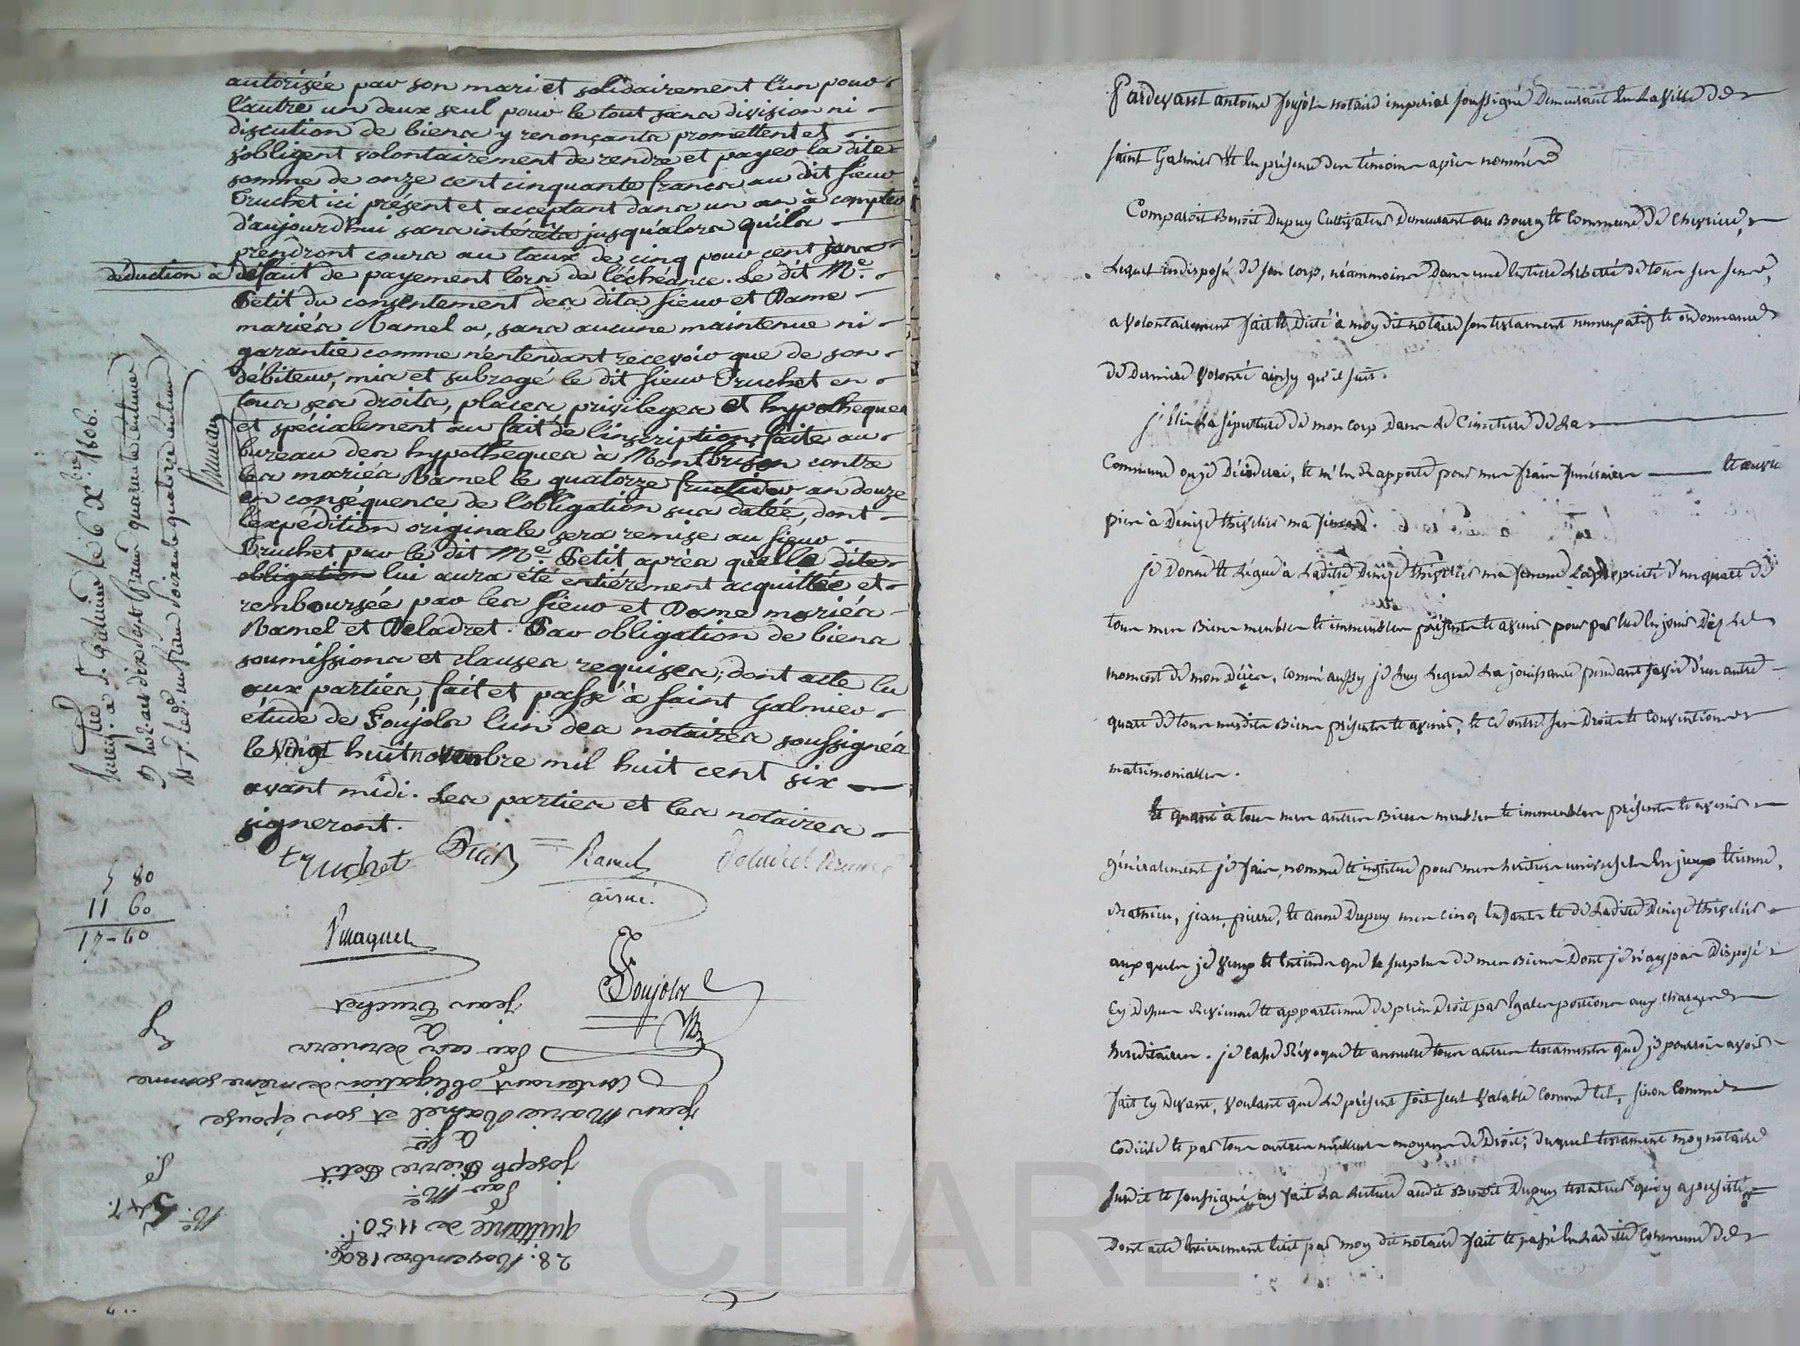 autorisée par son mari et solidairement l'un pour
l'autre un deux seul pour le tout sans division ni
discution de biens y renonçants promettent et
s'obligent solontairement de rendre et payer la dite
somme de onze cent cinquante francs au dit sieur
Truchet ici présent et acceptant dans un an à compter
d'aujourd'hui sans interêts jusqu'alors qu'ils
prendront cours au taux de cinq pour cent sans
déduction à défaut de payement lors de l'échéance. Le dit Me.
Petit du consentement des dits sieur et Dame
mariés Ramel a, sans aucune maintenue ni
garantie comme n'entendant recevoir que de son
débiteur, mis et subrogé le dit sieur Truchet en
tous ses droits, places privileges et hypotheques
et spécialement au fait de l'inscription faite au
bureau des hypotheques à Montbrison contre
les mariés Ramel le quatorze fructidor an douze
en conséquence de l'obligation sus datée, dont
l'expédition originale sera remise au sieur
Truchet par le dit Me. Petit après qu'elle dite
obligation lui aura été entiérement acquittée et
remboursée par les sieur et Dame mariés
Ramel et Deladret. Par obligation de biens
soumissions et clauses requises; dont acte lu
aux parties, fait et passé à saint Galmier
étude de Foujols l'un des notaires soussignés
le vingt huit novembre mil huit cent six
avant midi. Les parties et les notaires
signeront.
truchet Petit Ramel
ainé.
5 80
11 60
17-40
Foujols
28. Novembre 1806.
quittance de 1150f.
Par Me.
joseph Pierre Petit
à Sr.
jean Marie Ramel et son épouse
Contenant obligation de même somme
Par ces derniers
à
jean Truchet
No.
547.
Pardevant antoine foujols notaire imperial soussigné Demeurant En La Ville de
saint Galmier Et En présence des témoins après nommés
Comparoit Benoit Dupuy Cultivateur Demeurant au Bourg Et Commune de Chevrieres,
Lequel indisposé de son corps, néammoins Dans une Entiere Liberté de tous ses sens,
a volontairement fait Et Dicté à moy dit notaire son testament nuncupatif Et ordonnance
de Derniere volonté ainsy qu'il suit.
j'Elis La sépulture de mon corps Dans Le Cimetiere de La
Commune ou je Décederai, Et m'En Rapporte pour mes frais funéraires Et œuvre
pies à Denize thivelier ma femme.
je Donne Et Legue a Ladite Denize thivelier ma femme La propriété d'un quart de
tous mes Biens meubles Et immeubles présents Et avenir pour par Elle En jouir Dès Le
moment de mon Décès, comm'aussy je Luy Legue La jouissance pendant sa vie d'un autre
quart de tous mesdits Biens présents Et avenir, Et ce outre ses Droits Et Conventions
matrimoniales.
Et quant à tous mes autres Biens meubles Et immeubles présents Et avenir
généralement je fais, nomme Et institue pour mes heritiers universels En jeux Etienne,
Mathieu, jean, pierre, Et anne Dupuy mes cinq Enfants Et de Ladite Denize thivelier
aux quels je veux Et Entends que Le surplus de mes Biens Dont je n'ay pas Disposé
Cy Dessus Revienne Et appartienne de plein Droit par Egales portions aux charges
hereditaires. je Casse Révoque Et annulle tous autres testaments que je pourrois avoir
fait Cy Devant, voulant que Le présent soit seul Valable comme tel, sinon Comme
Codicile Et par tous autres meilleurs moyens de Droit; duquel testament moy notaire
susdit Et soussigné ay fait La Lecture audit Benoit Dupuy testateur quoy a persisté
Dont acte Entierement Ecrit par moy dit notaire fait Et passé En Ladite Commune de
Pascal CHAREYRON